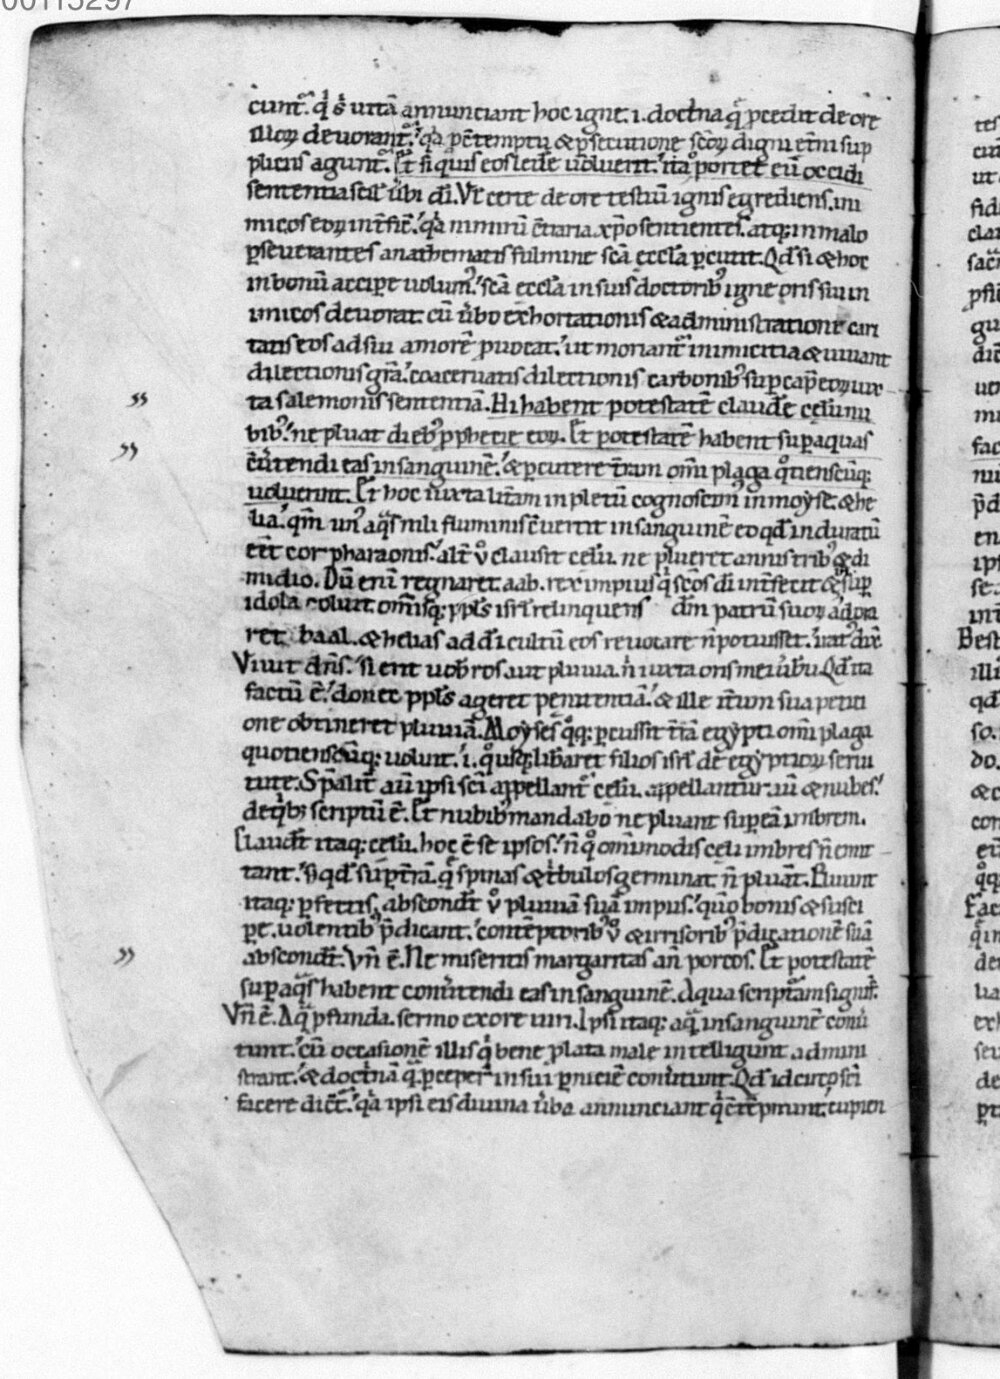 00115297
cunt᷑. q̇ s̄ uitā annunciant hoc igne .i. doct̓na q̄ pcedit de ore
illoꝝ deuorant᷑. q̇a pꝰ temptū & ꝑsecutione scōꝝ digni et̓ni sup
pliciis agunt᷑. Et si quis eos ledē uoluerit. ita oportet eū occidi
sententia scil᷑ ūbi dī. Ul̓ certe de ore testiū ignis egrediens. ini
micos eoꝝ int̓fic̄. q̇a nimirū c̄traria xp̄o sentientes. atq; in malo
ꝑseuerantes anathematis fulmine scā eccl̓a ꝑcutit. Qd̓ si & hoc
in bonū accipe uolum᷒. scā eccl̓a in suis doctorib᷒ igne oris sui in
imicos deuorat. cū ūbo exhortationis & administratione cari
tatis eos ad sui amorē ꝓuocat. ut moriant᷑ inimicitia & uiuant
dilectionis gr̄a. coaceruatis dilectionis carbonib᷒ sup cap̄ eoꝝ iux
ta salemonis sententiā. Hi habent potestatē claudē celū nu
bib᷒. ne pluat dieb᷒ ꝓphetie eoꝝ. Et potestatē habent sup aquas
c̄ūtendi eas in sanguinē. & ꝑcutere t̓ram om̄i plaga q̊tienscūq;
uoluerint. Et hoc iuxta lit̓am inpletū cognoscim᷒ in moyse. & he
lia. qm̄ un᷒ aq̄s nili fluminis c̄uertit in sanguinē eo qd̓ induratū
eēt cor pharaonis. alt̓ ů clausit celū. ne plueret annis trib᷒ & di
midio. Dū enī regnaret. aab. rex impius q̇ scōs dī int̓fecit & sup
idola coluit. om̄isq; ppl̓s isrl̓ relinquens dn̄m patrū suoꝝ adora
ret baal. & helias ad dī cultū eos reuocare n̄ potuisset. irat᷒ dixē
Viuit dn̄s. si erit uob̓ ros aut pluuia. n̄ iuxta oris mei ūbū. Qd̓ ita
factū ē. donec ppl̓s ageret penitentiā. & ille it̓um sua petiti
one obtineret pluuiā. Moyses q̊q; ꝑcussit t̓rā egypti om̄i plaga
quotienscūq; uoluit. .i. q̊usq; libaret filios isrl̓ de egyptioꝝ serui
tute. Sp̄alit̓ aū ipsi sc̄i appellant᷑ celū. appellantur aū & nubes.
de q̇b; scriptū ē. Et nubib᷒ mandabo ne pluant sup eā imbrem.
Claudt̓ itaq; celū. hoc ē se ipsos. n̄ q̊ om̄imodis celi imbres n̄ emit
tant. s̄ qd̓ sup t̓rā. q̄ spinas & t̓bulos germinat. n̄ pluāt. Pluunt
itaq; ꝑfectis. abscondt̓ ů pluuiā suā impiis. qm̄o bonis & susci
pe uolentib᷒ p̄dicant. contēptorib᷒ ů & irrisorib᷒ p̄dicationē suā
abscondt̓. Un̄ ē. Ne miseritis margaritas an̄ porcos. Et potestatē
sup aq̄s habent conūtendi eas in sanguinē. Aqua scripturam signif̄.
Un̄ ē. Aq̄ ꝓfunda. sermo ex ore uiri. Ipsi itaq; aq̄ in sanguinē conū
tunt. cū occasionē illis q̇ bene ꝓlata male intelligunt admini
strant. & doct̓nā q̄ ꝑcepert̓ in sui ꝑniciē conūtunt. Qd̓ idcirco sc̄i
facere dic̄t᷑. q̇a ipsi eis diuina ūba annunciant